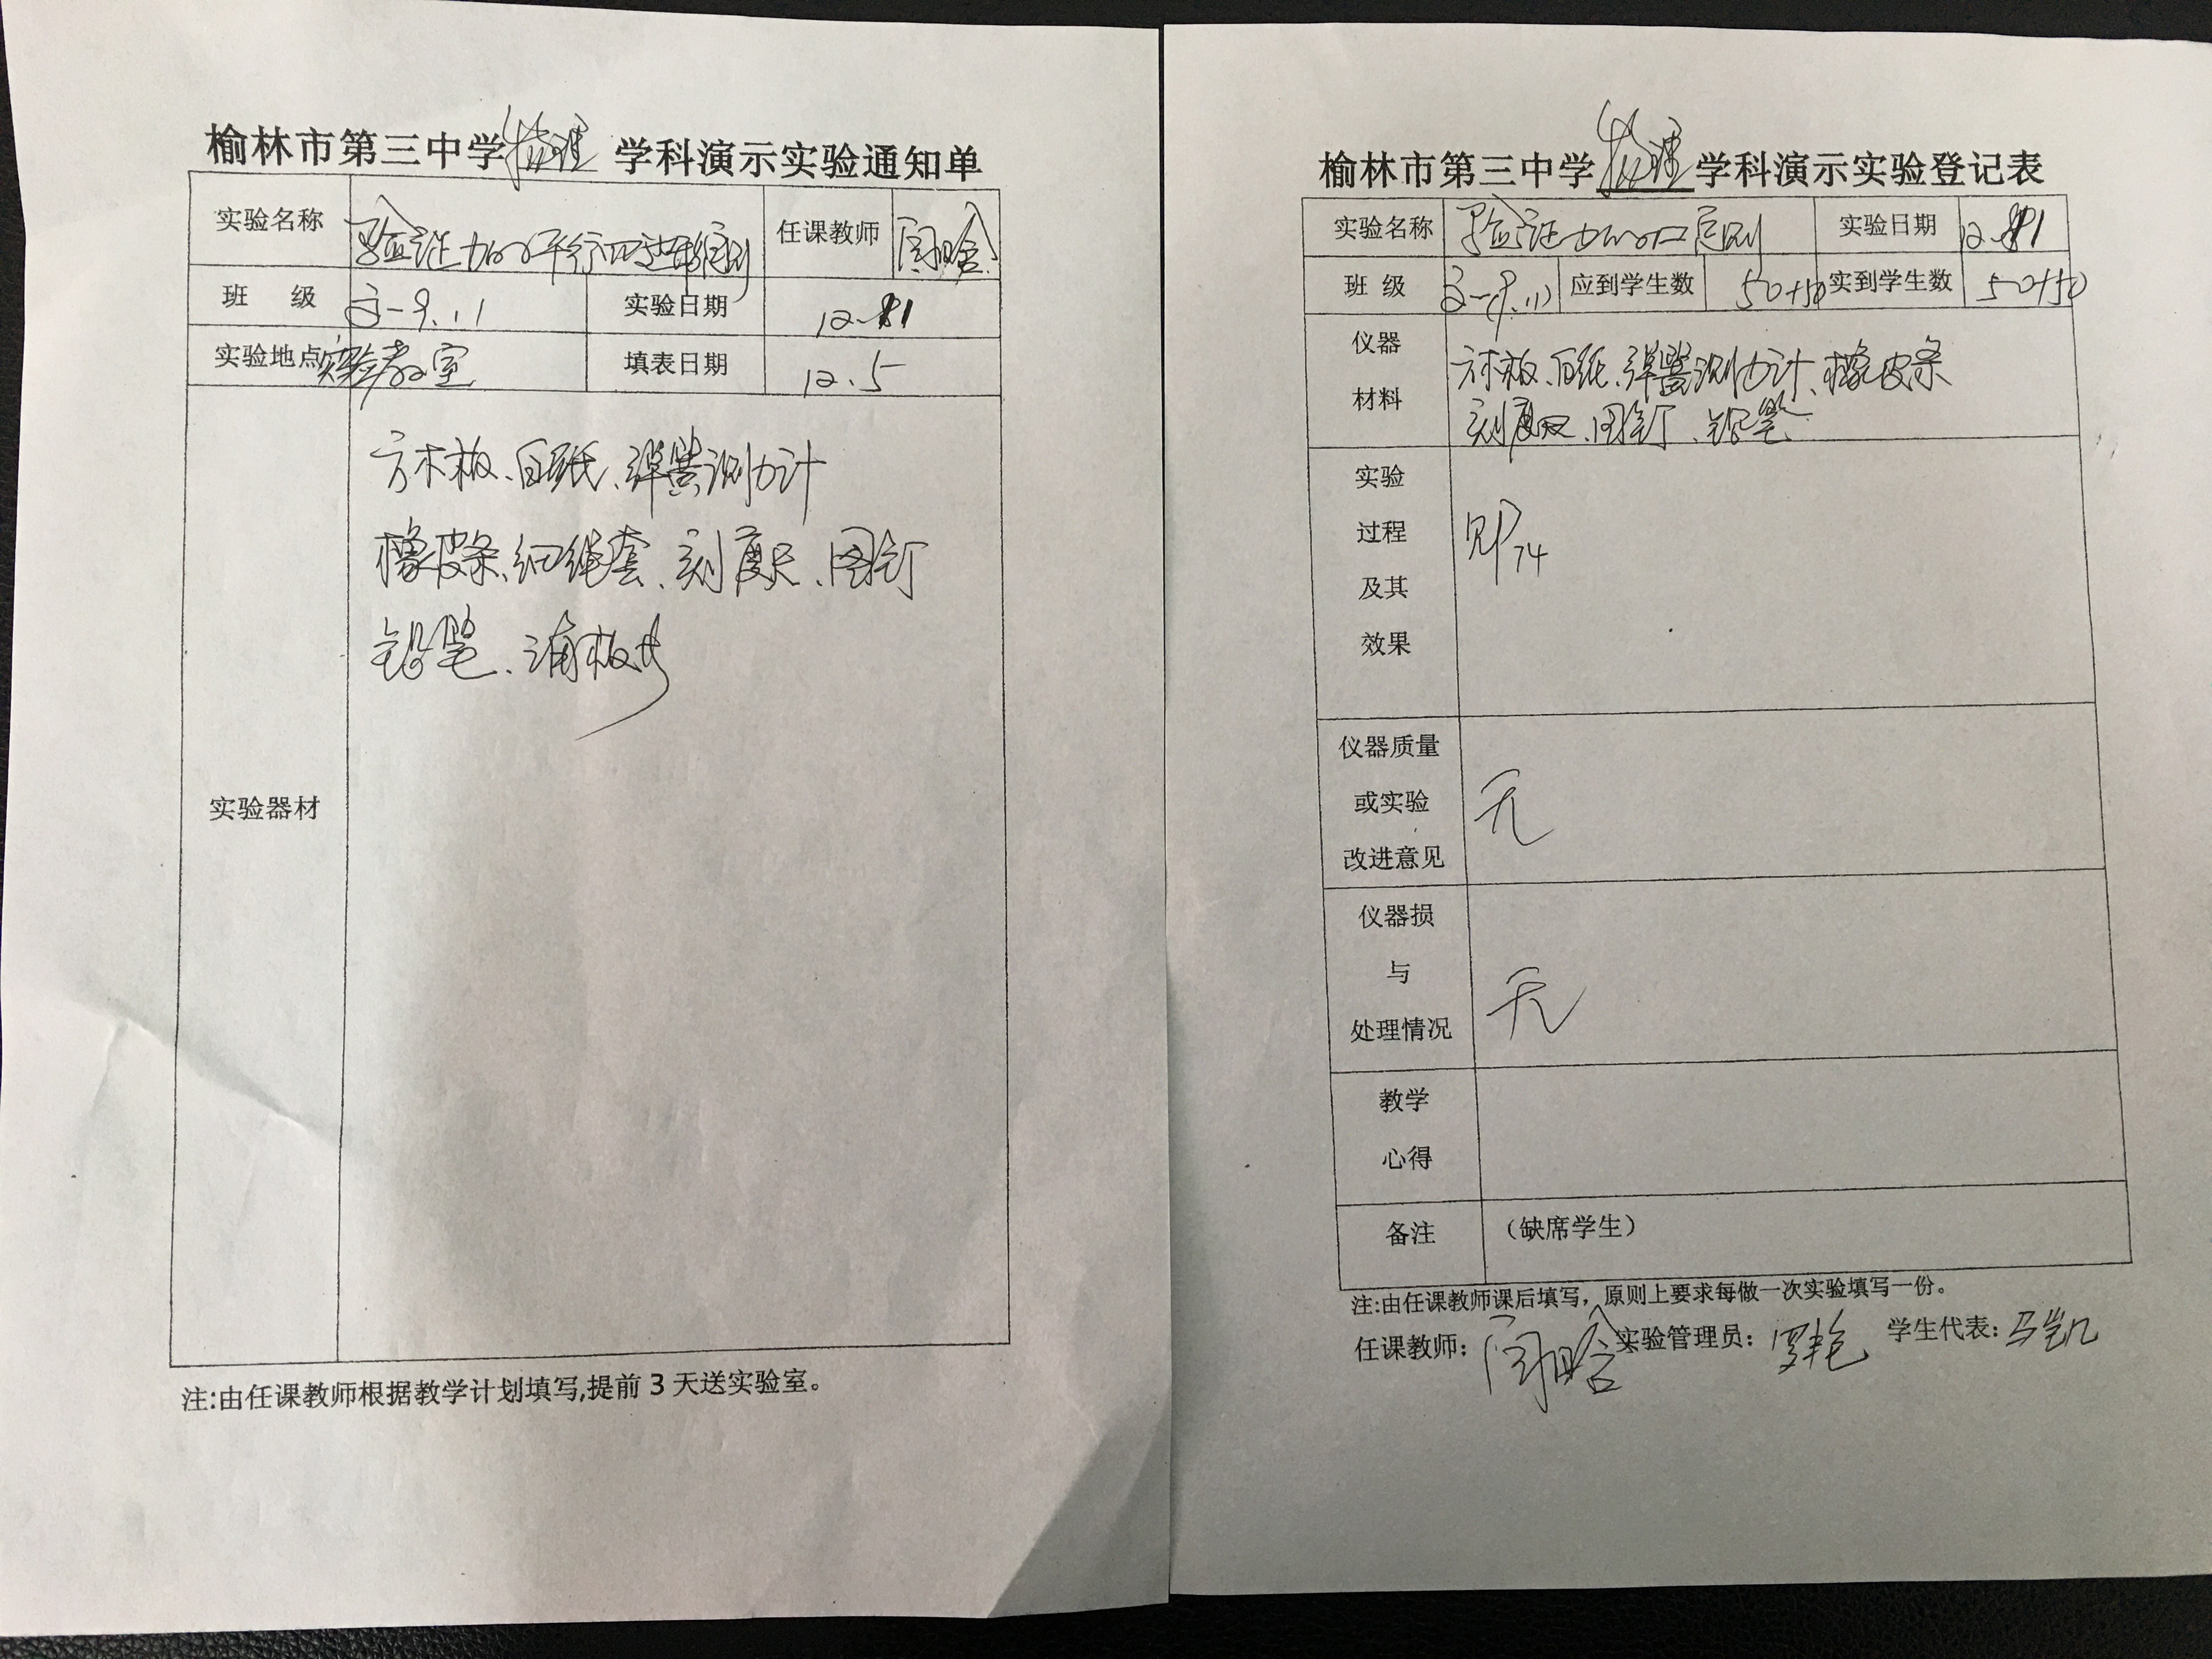 榆林市第三中学物理学科演示实验通知单
实验名称 验证力的平行四边形定则 任课教师
班 级 高一9.11 实验日期 12.
实验地点 实验教室 填表日期 12.5
实验器材
方木板、白纸、弹簧测力计
橡皮条、细绳套、刻度尺、图钉
铅笔、
注:由任课教师根据教学计划填写,提前3天送实验室。
榆林市第三中学物理学科演示实验登记表
实验名称 验证力的口定则 实验日期 12.
班 级 高一(9.11) 应到学生数 50+50 实到学生数 50+50
仪器
材料
方木板、白纸、弹簧测力计、橡皮条
刻度尺、图钉、铅笔
实验
过程
及其
效果
见P74
仪器质量
或实验
改进意见
无
仪器损
与
处理情况
无
教学
心得
备注 (缺席学生)
注:由任课教师课后填写,原则上要求每做一次实验填写一份。
任课教师: 实验管理员:罗艳 学生代表:马凯